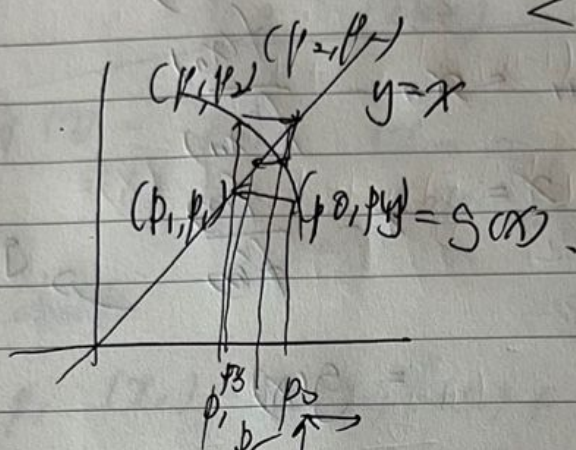 (p2, p2)
(p1, p2)
y=x
(p1, p1)
(p0, p1)
y = g(x)
p1
p3
p0